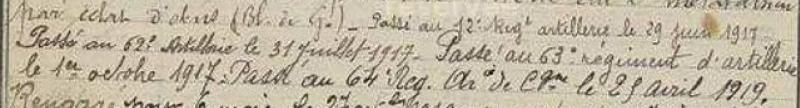 par éclat d'obus (Bl. de G.) - Passé au 12e Regt artillerie le 29 juin 1917 -
Passé au 62e Artillerie le 31 juillet 1917. Passé au 63e régiment d'artillerie
le 1er octobre 1917. Passé au 64e Reg. Arie de Cgne le 25 avril 1919.